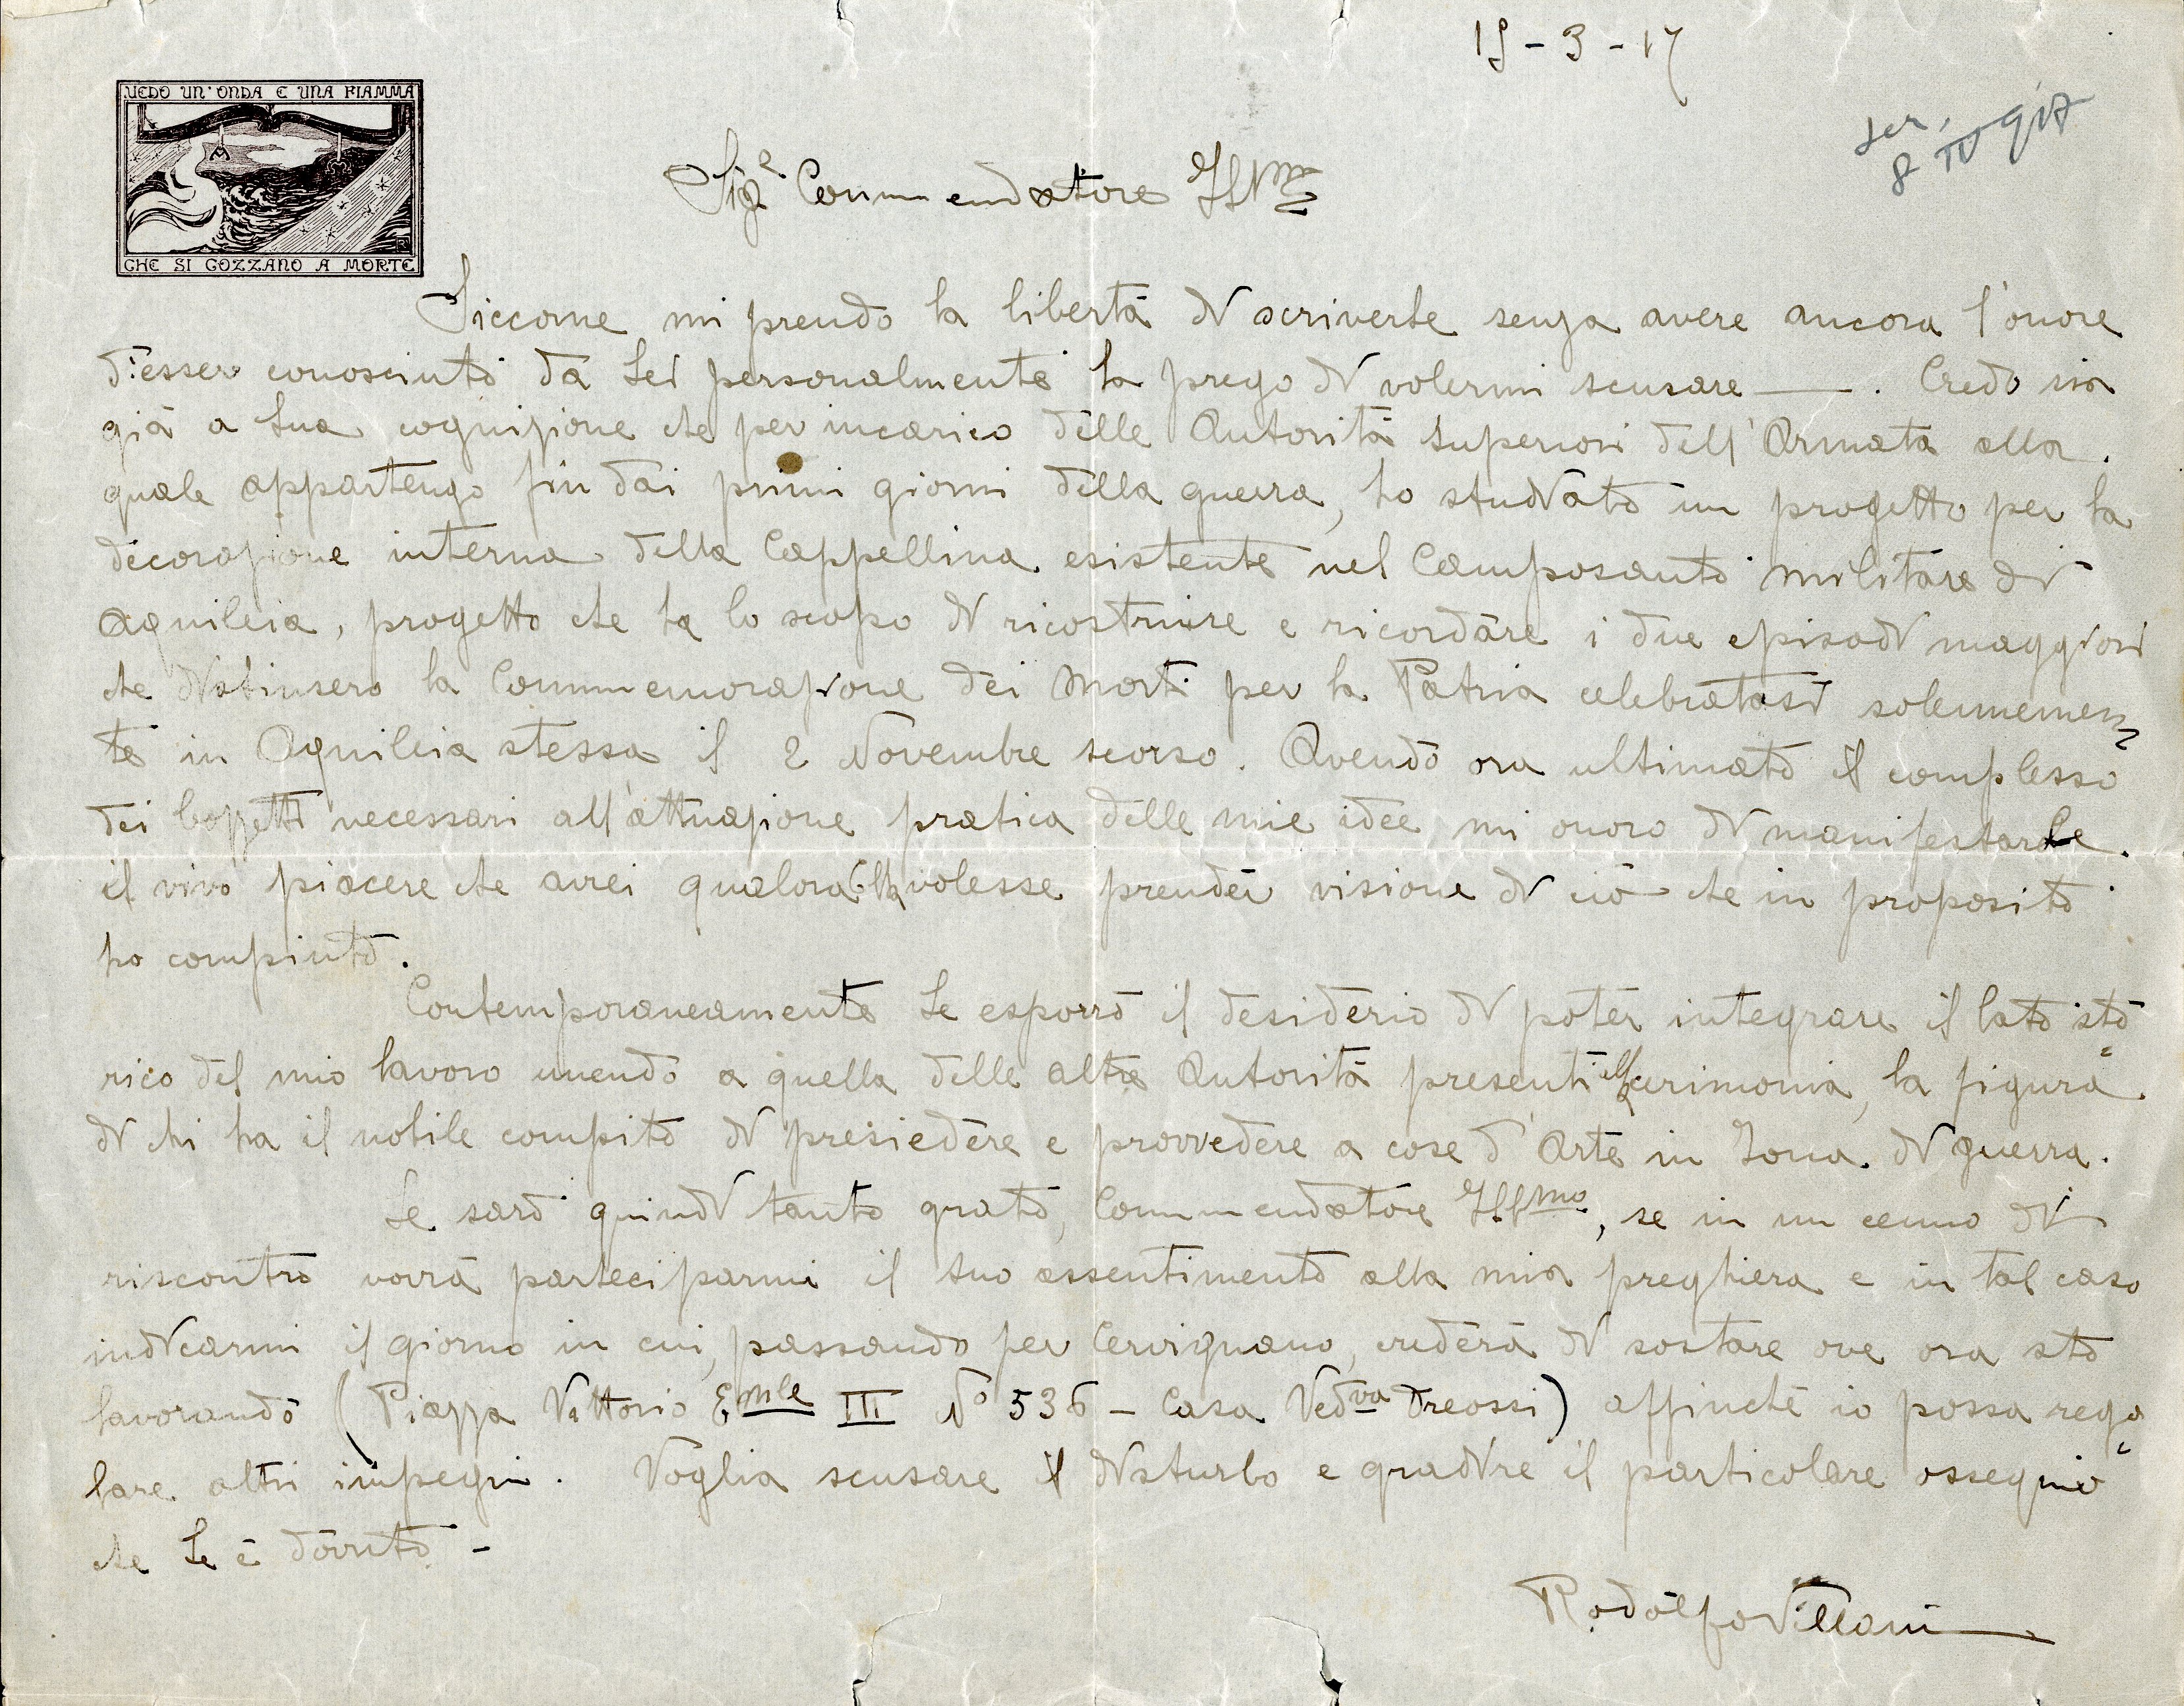 15-3-17
VEDO UN'ONDA E UNA FIAMMA
CHE SI COZZANO A MORTE
8 IV 917
Sigr Commendatore Illmo
Siccome mi prendo la libertà di scriverle senza avere ancora l'onore
d'esser conosciuto da Lei personalmente la prego di volermi scusare —. Credo sia
già a Sua cognizione che per incarico delle Autorità Superiori dell'Armata alla
quale appartengo fin dai primi giorni della guerra, ho studiato un progetto per la
decorazione interna della Cappellina esistente nel Camposanto militare di
Aquileia, progetto che ha lo scopo di ricostruire e ricordare i due episodi maggiori
che distinsero la Commemorazione dei Morti per la Patria celebratasi solennemen=
te in Aquileia stessa il 2 Novembre scorso. Avendo ora ultimato il complesso
dei bozzetti necessari all'attuazione pratica delle mie idee mi onoro di manifestarLe
il vivo piacere che avrei qualora Ella volesse prender visione di ciò che in proposito
ho compiuto.
Contemporaneamente Le esporrò il desiderio di poter integrare il lato sto=
rico del mio lavoro unendo a quella delle altre Autorità presenti alla cerimonia, la figura
di chi ha il nobile compito di presiedere e provvedere a cose d'Arte in Zona di guerra.
Le sarò quindi tanto grato, Commendatore Illmo, se in un cenno di
riscontro vorrà parteciparmi il Suo assentimento alla mia preghiera e in tal caso
indicarmi il giorno in cui, passando per Cervignano, crederà di sostare ove ora sto
lavorando (Piazza Vittorio Emle III No 536 - Casa Vedva Dreossi) affinché io possa rego=
lare altri impegni. Voglia scusare il disturbo e gradire il particolare ossequio
che Le è dovuto -
Rodolfo Villani